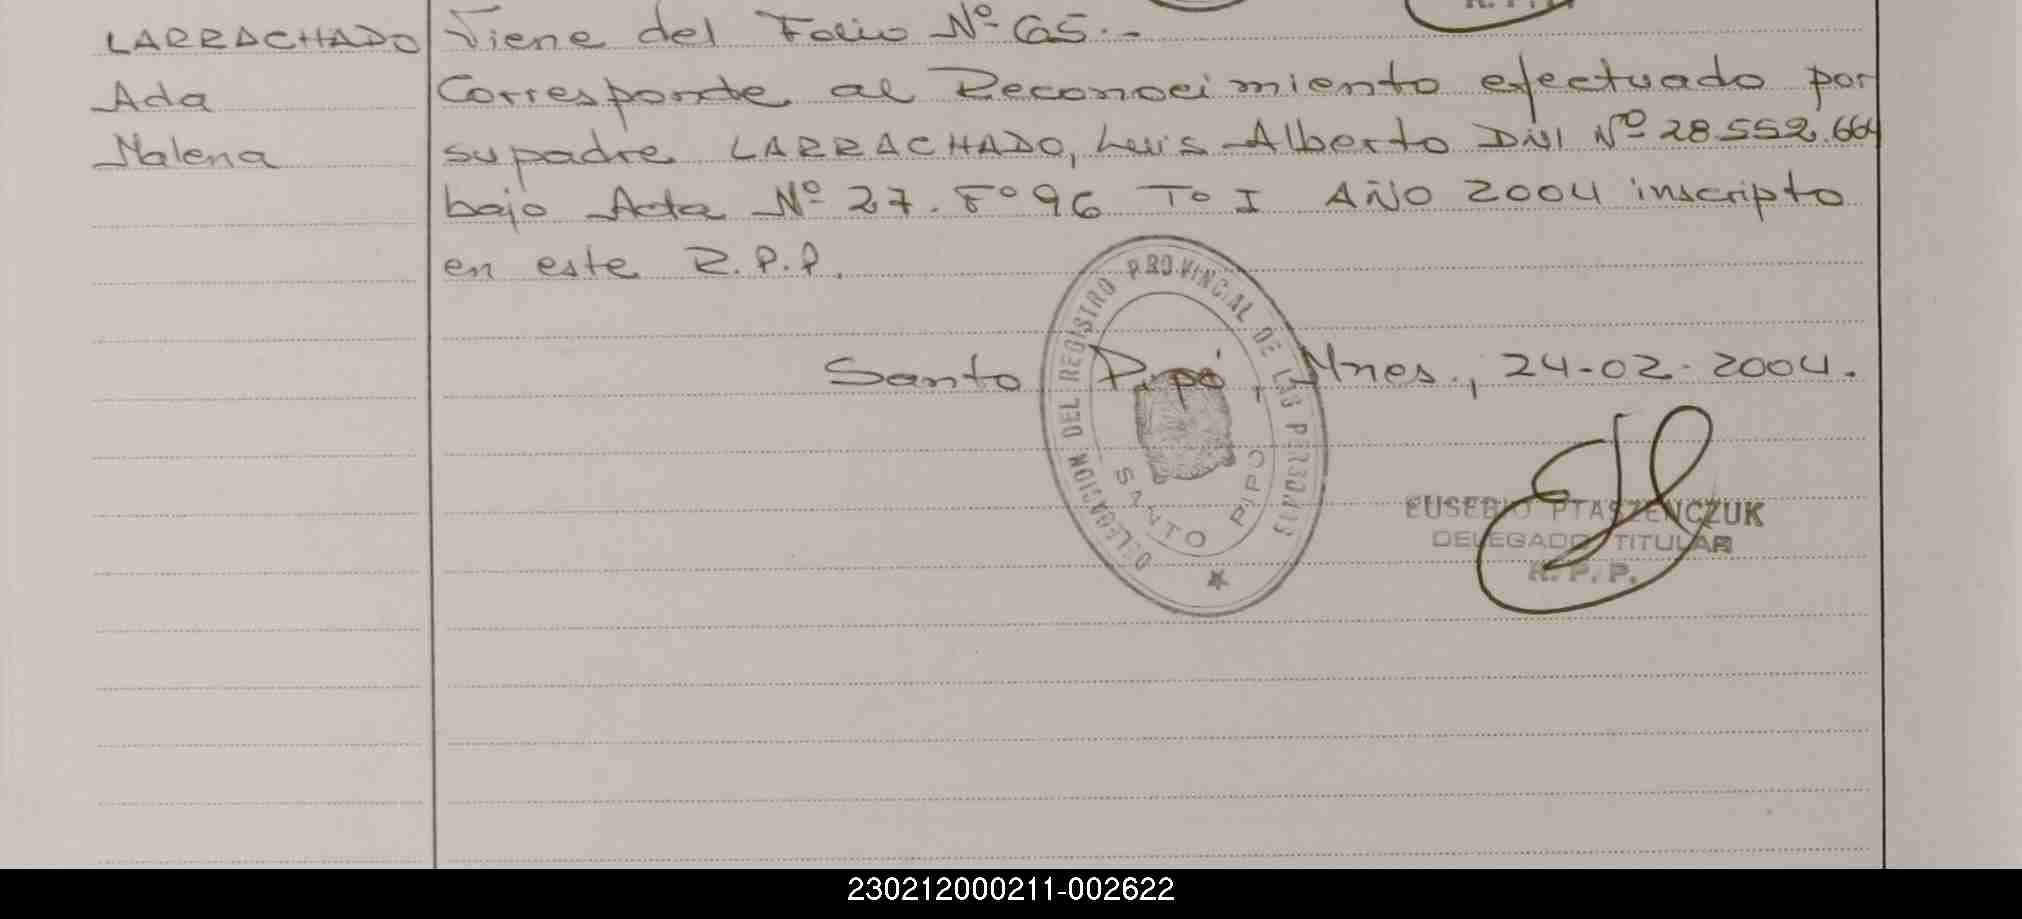 LARRACHADO
Ada
Malena
Viene del Folio Nº 65.-
Corresponde al Reconocimiento efectuado por
su padre LARRACHADO, Luis Alberto DNI Nº 28.552.664
bajo Acta Nº 27. Fº 96 Tº I AÑO 2004 inscripto
en este R.P.P.
Santo Pipó, Mnes., 24-02-2004.
DELEGACION DEL REGISTRO PROVINCIAL DE LAS PERSONAS
SANTO PIPO
EUSEBIO PTASZENCZUK
DELEGADO TITULAR
R. P. P.
230212000211-002622